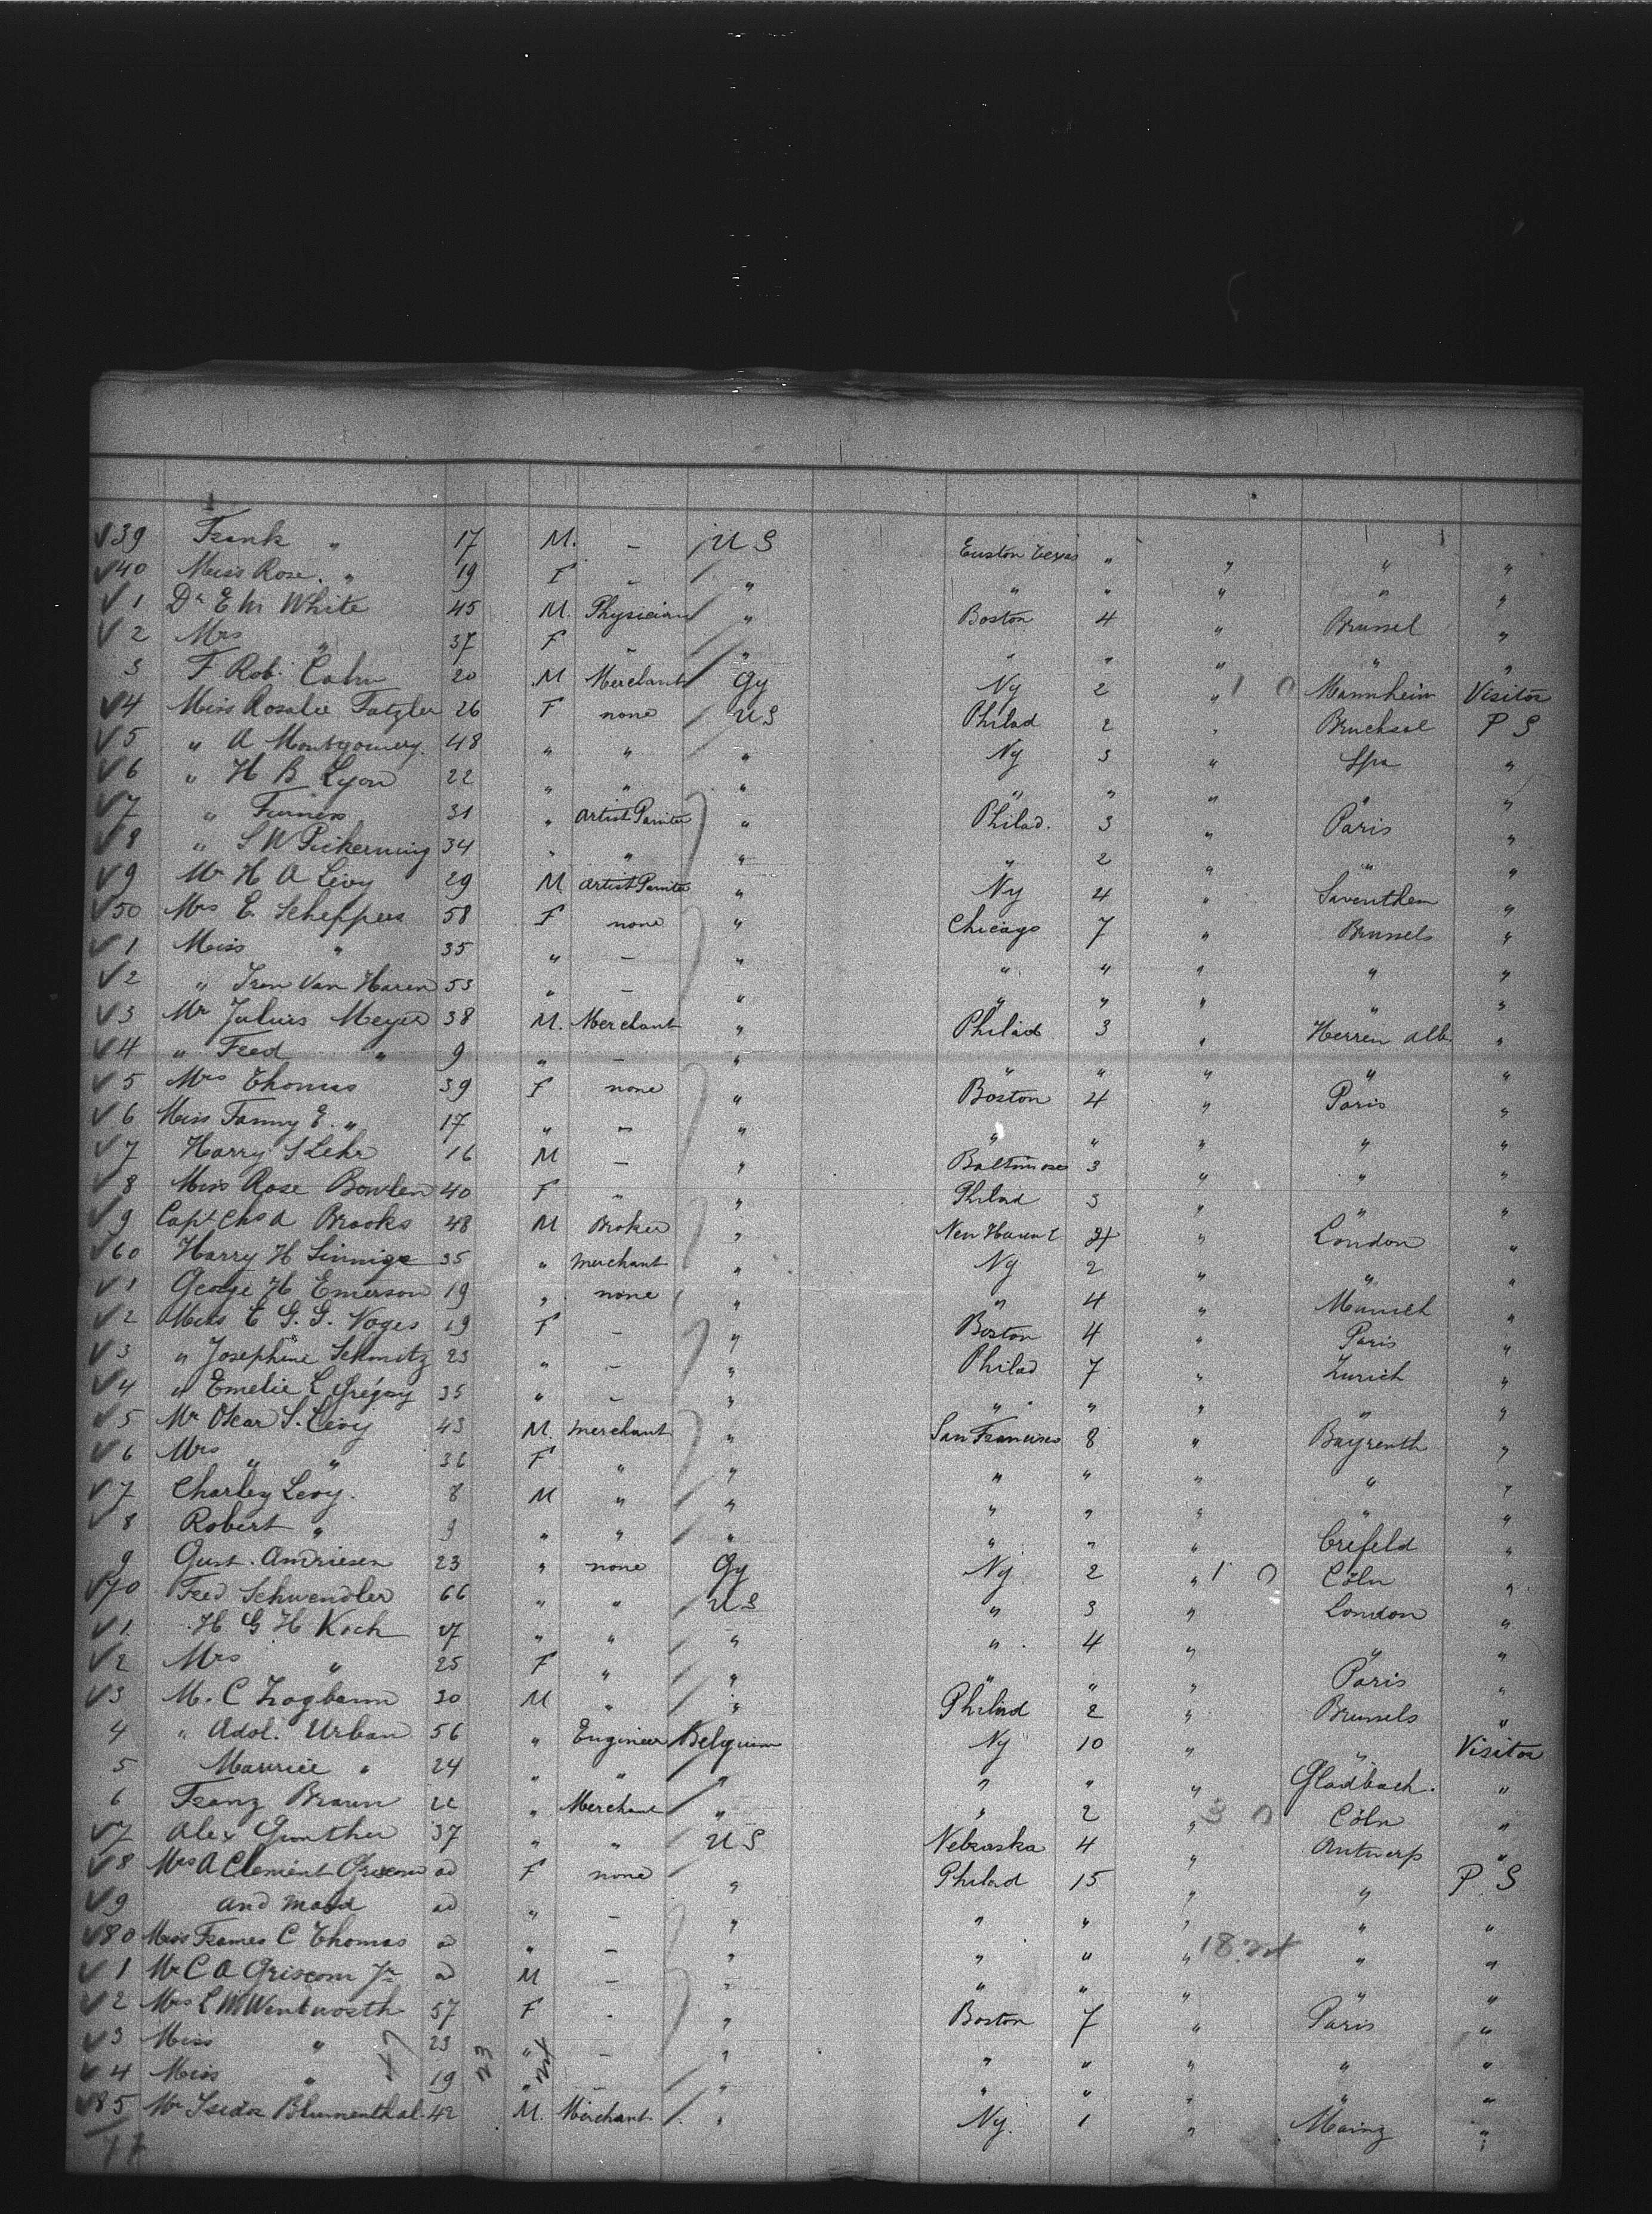 ✓39 Frank " 17 M. - U S Euston Texas " " " "
✓40 Miss Rose " 19 F - " " " " " "
✓1 Dr E W White 45 M. Physician " Boston 4 " Brussel "
✓2 Mrs " 37 F - " " " " " "
3 F Rob. Cahn 20 M Merchant Gy Ny 2 " 1 0 Mannheim Visitor
✓4 Miss Rosalie Fatzler 26 F none U S Philad 2 " Bruchsal P S
✓5 " A Montgomery 48 " " " Ny 3 " Spa "
✓6 " H B Lyon 22 " " " " " " " "
✓7 " Furness 31 " Artist Painter " Philad. 3 " Paris "
✓8 " S W Pickerning 34 " " " " 2 " " "
✓9 Mr H A Levy 29 M Artist Painter " Ny 4 " Saventhem "
✓50 Mrs E. Scheppers 58 F none " Chicago 7 " Brussels "
✓1 Miss " 35 " - " " " " " "
✓2 " Iren Van Haren 53 " - " " " " " "
✓3 Mr Julius Meyer 38 M. Merchant " Philad 3 " Herren alb. "
✓4 " Fred " 9 " - " " " " " "
✓5 Mrs Thomas 39 F none " Boston 4 " Paris "
✓6 Miss Fanny E. " 17 " - " " " " " "
✓7 Harry S Lehr 16 M - " Baltimore 3 " " "
✓8 Miss Rose Bowlen 40 F " " Philad 3 " " "
✓9 Capt Chs A Brooks 48 M Broker " New Haven " London "
✓60 Harry H Sinnige 35 " merchant " Ny 2 " " "
✓1 George H Emerson 19 " none " " 4 " Munich "
✓2 Miss E G. G. Voges 19 F - " Boston 4 " Paris "
✓3 " Josephine Schmitz 23 " - " Philad 7 " Zurich "
✓4 " Emelie L Grégory 35 " - " " " " " "
✓5 Mr Oskar S. Levy 43 M. merchant " San Francisco 8 " Bayreuth "
✓6 Mrs " " 36 F " " " " " " "
✓7 Charley Levy. 8 M " " " " " " "
✓8 Robert " 9 " " " " " " Crefeld "
9 Gust. Andriesen 23 " none Gy Ny 2 " 1 0 Cöln "
✓70 Fred Schwendler 66 " " U S " 3 " London "
✓1 H G H Koch 47 " " " " 4 " " "
✓2 Mrs " 25 F " " " " " Paris "
✓3 M. C Zogbaum 30 M " " Philad 2 " Brussels "
4 " Adol. Urban 56 " Engineer Belgium Ny 10 " " Visitor
5 Maurice " 24 " " " " " " Gladbach. "
6 Franz Braun 22 " Merchant " " 2 " 3 0 Cöln "
✓7 Alex Gunther 37 " " U S Nebraska 4 " Antwerp "
✓8 Mrs A Clement Griscom ad F none " Philad 15 " " P. S
✓9 and maid ad " - " " " " " "
✓80 Miss Frances C Thomas ad " - " " " " 18 " "
✓1 Mr C A Griscom Jr ad M - " " " " " "
✓2 Mrs L M Wentworth 57 F - " Boston 7 " Paris "
✓3 Miss " 23 " - " " " " " "
✓4 Miss " 19 " - " " " " " "
✓85 Mr Isidor Blumenthal. 42 M. Merchant " Ny. 1 " Mainz "